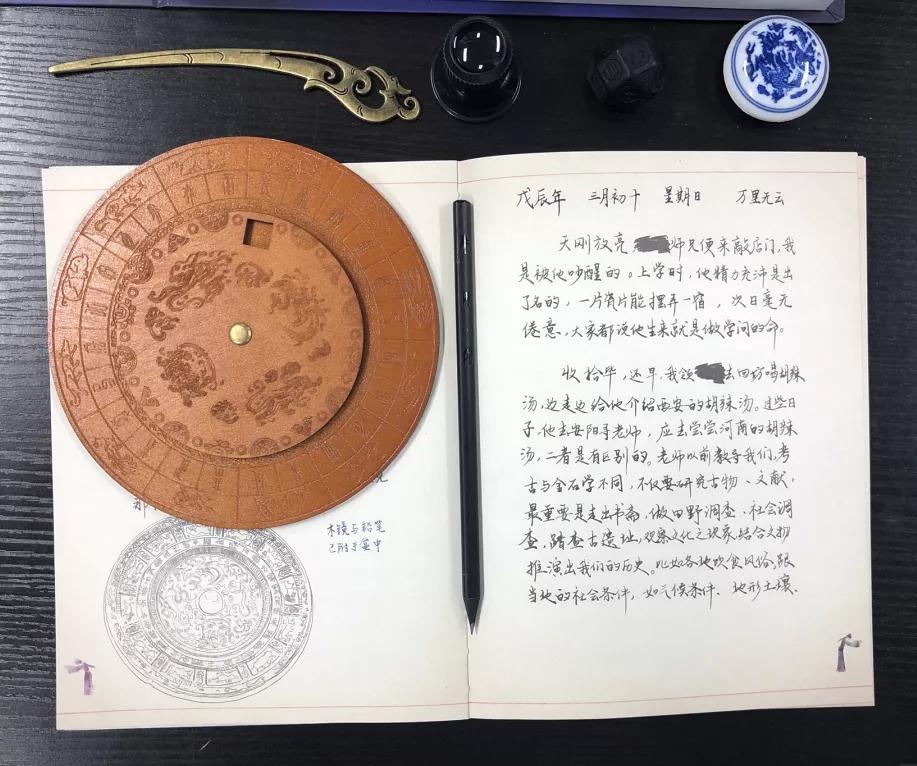 戊辰年 三月初十 星期日 万里无云
天刚放亮 师兄便来敲店门,我
是被他吵醒的。上学时,他精力充沛是出
了名的,一片省片能摆弄一宿,次日毫无
倦意,大家都说他生来就是做学问的命。
收拾毕,还早,我领 去回坊喝胡辣
汤,边走边给他介绍西安的胡辣汤。这些日
子,他去安阳寻老师,应去尝尝河南的胡辣
汤,二者是有区别的。老师以前教导我们,考
古与金石学不同,不仅要研究古物、文献,
最重要是走出书斋,做田野调查、社会调
查,踏查古遗址,观察文化之现象,结合文物
推演出我们的历史。比如各地饮食风俗,跟
当地的社会条件,如气候条件、地形土壤、
木镜与铅笔
已附于盒中